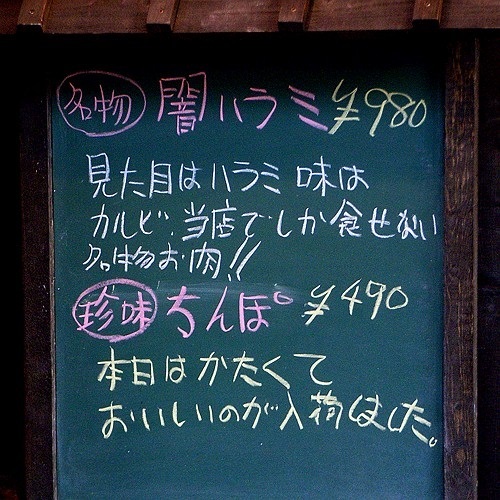 名物 闇ハラミ ¥980
見た目はハラミ 味は
カルビ。当店でしか食せない
名物お肉!!
珍味 ちんぽ ¥490
本日はかたくて
おいしいのが入荷しました。